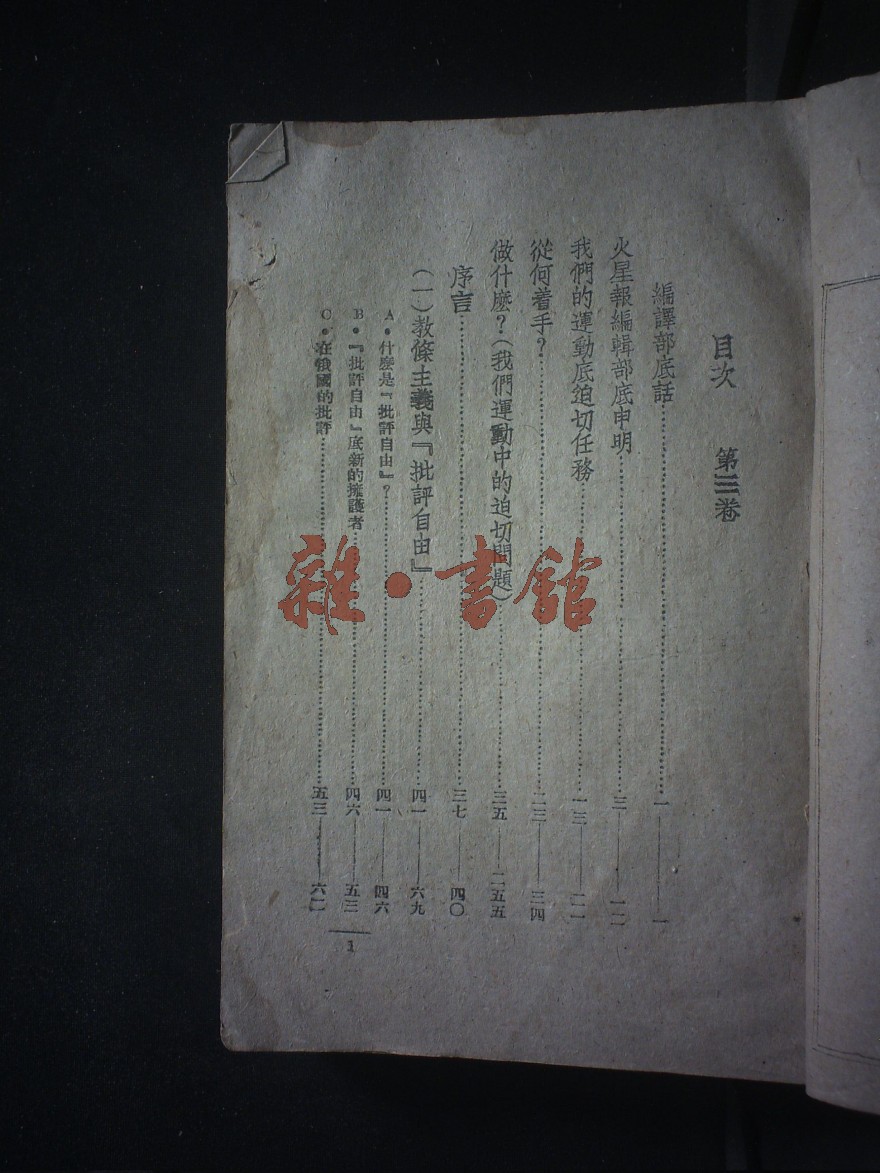 目次 第三卷
編譯部底話……一——一
火星報編輯部底申明……三——一二
我們的運動底迫切任務……一三——二一
從何着手?……二三——三四
做什麼?(我們運動中的迫切問題)……三五——二五五
序言……三七——四〇
(一)教條主義與『批評自由』……四一——六九
A·什麼是『批評自由』?……四一——四六
B·『批評自由』底新的擁護者……四六——五三
C·在俄國的批評……五三——六二
1
雜·書館